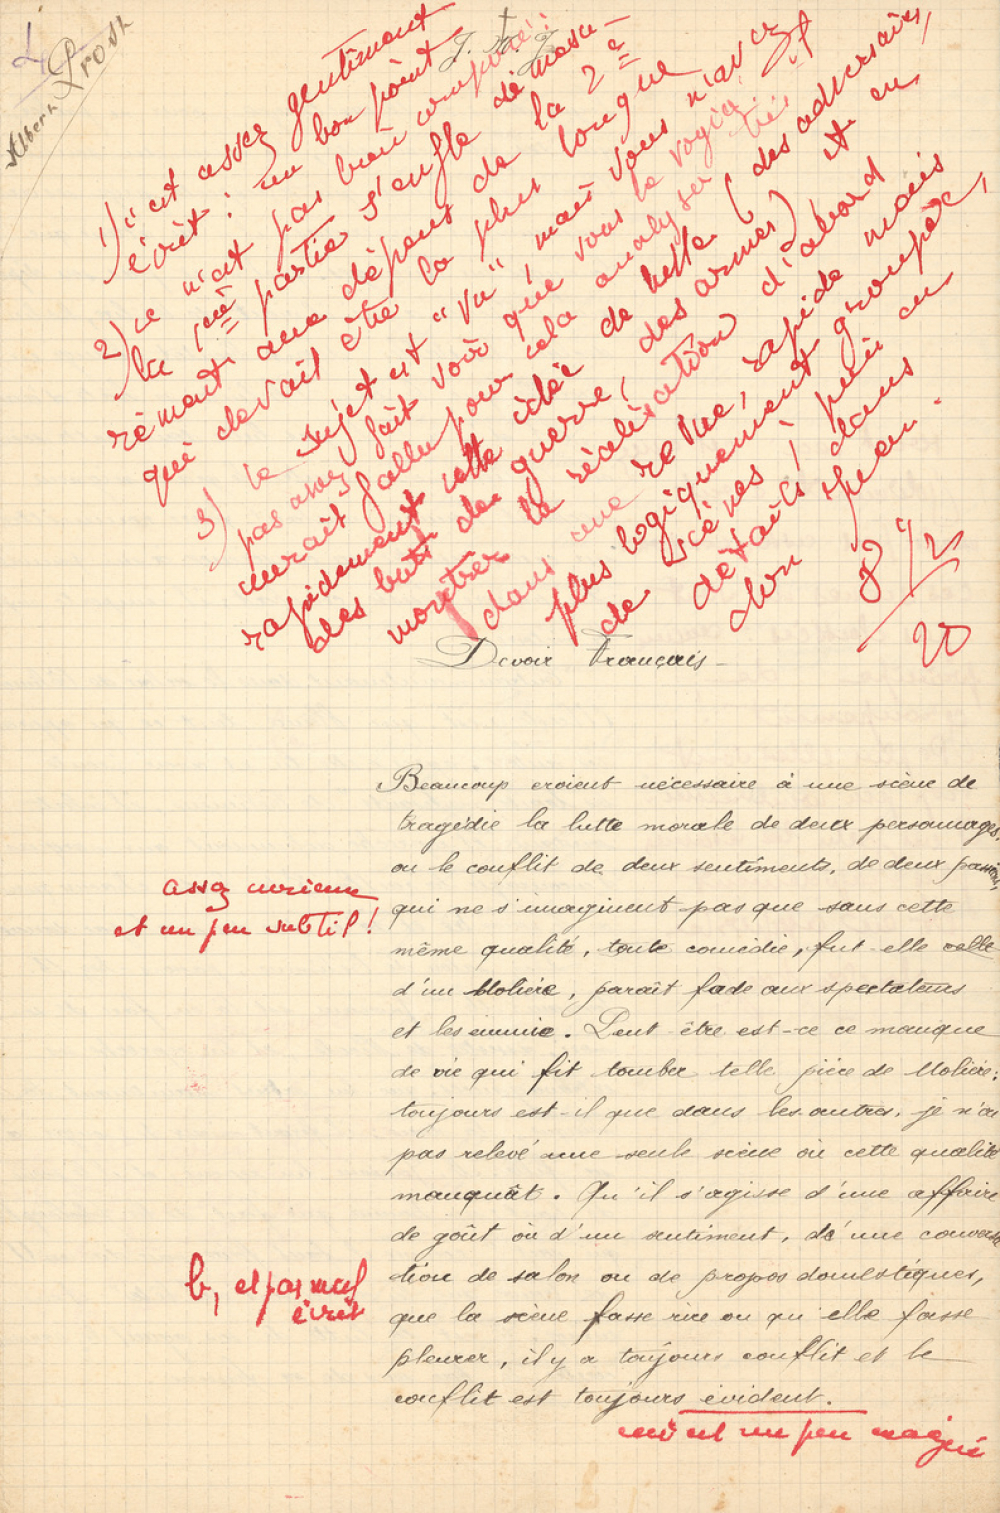 Albert Prost
J. M. J.
1) c'est assez gentiment
écrit : un bon point
2) ce n'est pas bien composé !!
la 1ère partie s'enfle démesu-
rément aux dépens de la 2e
qui devait être la plus longue
3) le sujet est "vu", mais vous n'avez
pas assez fait voir que vous le voyiez. Il
aurait fallu pour cela analyser très
rapidement cette idée de lutte (des adversaires,
des buts de guerre, des armes) et en
montrer la réalisation d'abord
dans une revue, rapide mais
plus logiquement groupée,
de scènes, puis en
détails, dans
don Juan.
8 1/2
20
Devoir Français
Beaucoup croient nécessaire à une scène de
tragédie la lutte morale de deux personnages,
ou le conflit de deux sentiments, de deux passions,
qui ne s'imaginent pas que sans cette
même qualité, toute comédie, fut-elle celle
d'un Molière, paraît fade aux spectateurs
et les ennuie. Peut être est-ce ce manque
de vie qui fit tomber telle pièce de Molière;
toujours est-il que dans les autres, je n'ai
pas relevé une seule scène où cette qualité
manquât. Qu'il s'agisse d'une affaire
de goût ou d'un sentiment, d'une conversa
tion de salon ou de propos domestiques,
que la scène fasse rire ou qu'elle fasse
pleurer, il y a toujours conflit et le
conflit est toujours évident.
assez curieux
et un peu subtil !
b, et pas mal
écrit
ceci est un peu exagéré